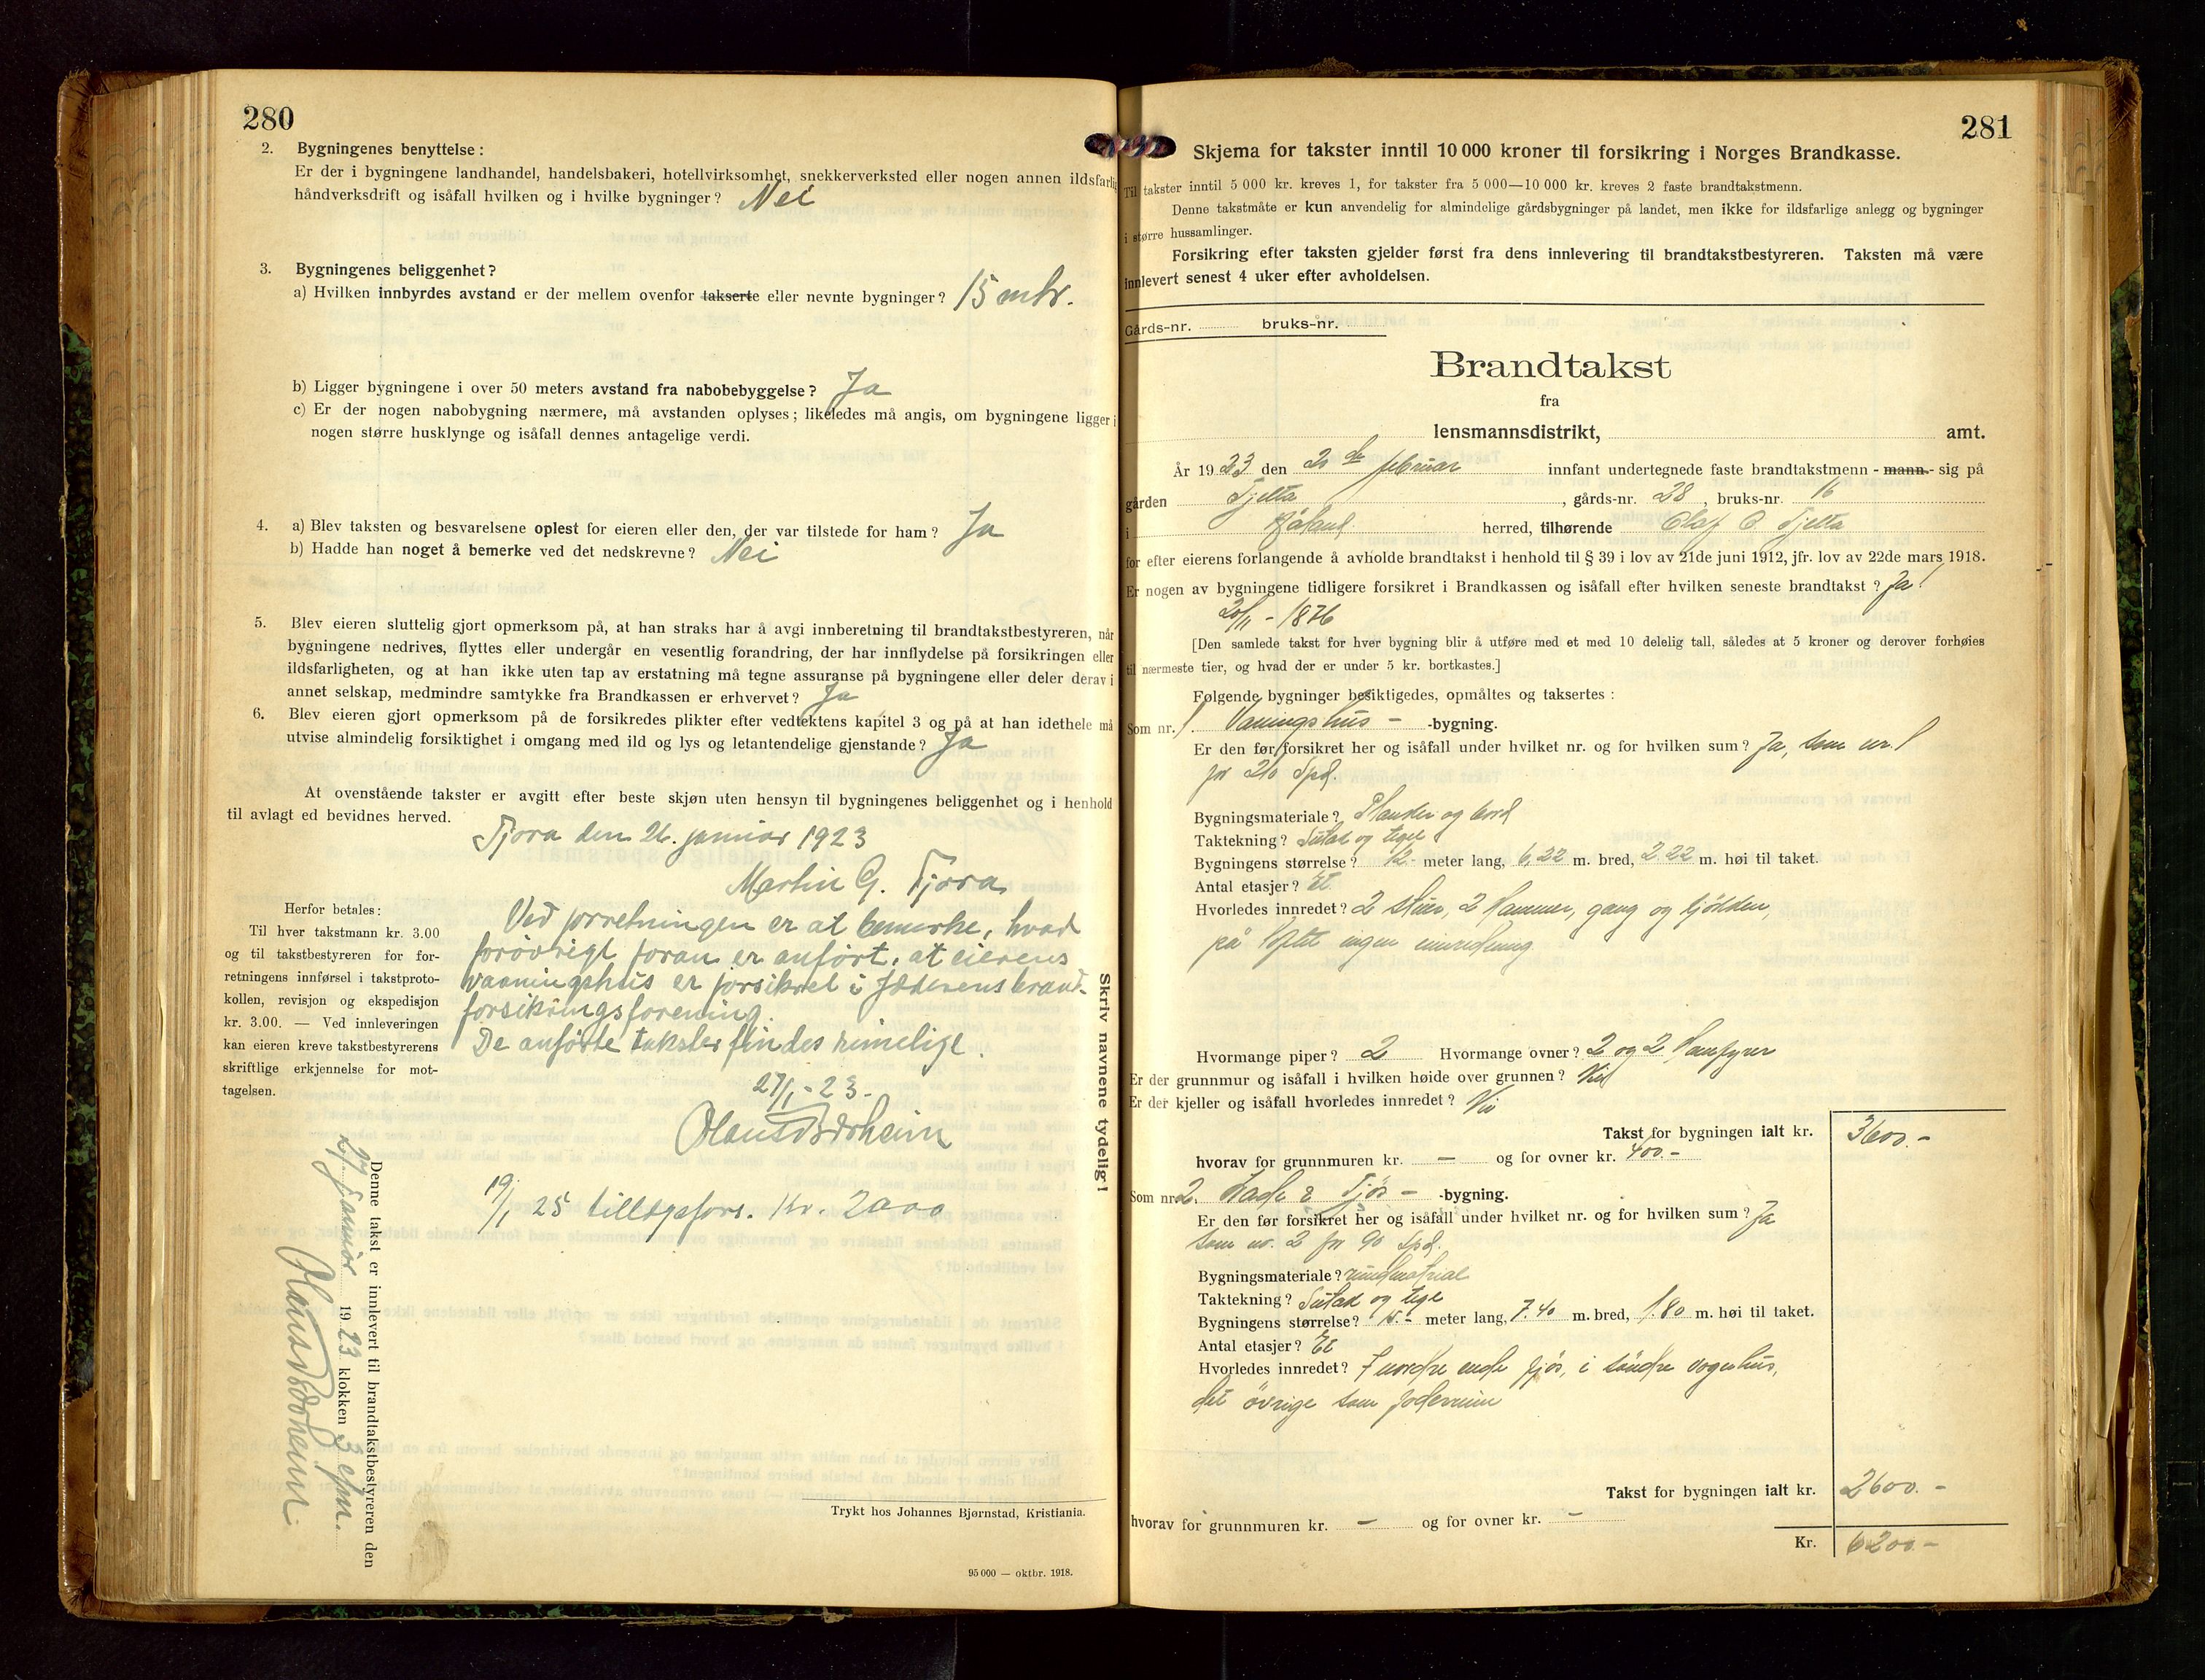 280
2. Bygningenes benyttelse:
Er der i bygningene landhandel, handelsbakeri, hotellvirksomhet, snekkerverksted eller nogen annen ildsfarlig
håndverksdrift og isåfall hvilken og i hvilke bygninger? Nei
3. Bygningenes beliggenhet?
a) Hvilken innbyrdes avstand er der mellem ovenfor takserte eller nevnte bygninger? 15 mtr.
b) Ligger bygningene i over 50 meters avstand fra nabobebyggelse? Ja
c) Er der nogen nabobygning nærmere, må avstanden oplyses; likeledes må angis, om bygningene ligger i
nogen større husklynge og isåfall dennes antagelige verdi.
4. a) Blev taksten og besvarelsene oplest for eieren eller den, der var tilstede for ham? Ja
b) Hadde han noget å bemerke ved det nedskrevne? Nei
5. Blev eieren sluttelig gjort opmerksom på, at han straks har å avgi innberetning til brandtakstbestyreren, når
bygningene nedrives, flyttes eller undergår en vesentlig forandring, der har innflydelse på forsikringen eller
ildsfarligheten, og at han ikke uten tap av erstatning må tegne assuranse på bygningene eller deler derav i
annet selskap, medmindre samtykke fra Brandkassen er erhvervet? Ja
6. Blev eieren gjort opmerksom på de forsikredes plikter efter vedtektens kapitel 3 og på at han idethele må
utvise almindelig forsiktighet i omgang med ild og lys og letantendelige gjenstande? Ja
At ovenstående takster er avgitt efter beste skjøn uten hensyn til bygningenes beliggenhet og i henhold
til avlagt ed bevidnes herved.
Tjora den 26. januar 1923
Martin G. Tjora
Herfor betales:
Til hver takstmann kr. 3.00
og til takstbestyreren for for-
retningens innførsel i takstproto-
kollen, revisjon og ekspedisjon
kr. 3.00. — Ved innleveringen
kan eieren kreve takstbestyrerens
skriftlige erkjennelse for mot-
tagelsen.
Ved forretningen er at bemerke, hvad
forøvrigt foran er anført, at eierens
vaaningshus er forsikret i Jæderens brand-
forsikringsforening.
De anførte takster findes rimelige.
27/1-23.
19/1 25 tilleggsfors. Kr. 2000
Denne takst er innlevert til brandtakstbestyreren den
27 januar 1923 klokken 3 efm.
Skriv navnene tydelig!
Trykt hos Johannes Bjørnstad, Kristiania.
95 000 — oktbr. 1918.
281
Skjema for takster inntil 10 000 kroner til forsikring i Norges Brandkasse.
Til takster inntil 5 000 kr. kreves 1, for takster fra 5 000—10 000 kr. kreves 2 faste brandtakstmenn.
Denne takstmåte er kun anvendelig for almindelige gårdsbygninger på landet, men ikke for ildsfarlige anlegg og bygninger
i større hussamlinger.
Forsikring efter taksten gjelder først fra dens innlevering til brandtakstbestyreren. Taksten må være
innlevert senest 4 uker efter avholdelsen.
Gårds-nr. bruks-nr.
Brandtakst
fra
lensmannsdistrikt, amt.
År 1923 den februar innfant undertegnede faste brandtakstmenn - mann - sig på
gården Tjelta, gårds-nr. 28, bruks-nr. 16
i Håland herred, tilhørende Olaf C. Tjelta
for efter eierens forlangende å avholde brandtakst i henhold til § 39 i lov av 21de juni 1912, jfr. lov av 22de mars 1918.
Er nogen av bygningene tidligere forsikret i Brandkassen og isåfall efter hvilken seneste brandtakst? Ja!
20/11 - 1876
[Den samlede takst for hver bygning blir å utføre med et med 10 delelig tall, således at 5 kroner og derover forhøies
til nærmeste tier, og hvad der er under 5 kr. bortkastes.]
Følgende bygninger besiktigedes, opmåltes og taksertes:
Som nr. 1. Vaningshus - -bygning.
Er den før forsikret her og isåfall under hvilket nr. og for hvilken sum? Ja, som nr. 1
for 210 Spd.
Bygningsmateriale? Planker og bord
Taktekning? Sutak og tegl
Bygningens størrelse? 12 - meter lang, 6,22 m. bred, 2.22 m. høi til taket.
Antal etasjer? Et
Hvorledes innredet? 2 stuer, 2 kammer, gang og kjökken,
på loftet ingen innredning
Hvormange piper? 2 Hvormange ovner? 2 og 2
Er der grunnmur og isåfall i hvilken høide over grunnen? Nei
Er der kjeller og isåfall hvorledes innredet? Nei
Takst for bygningen ialt kr. 3600.-
hvorav for grunnmuren kr. — og for ovner kr. 400.-
Som nr. 2. Lade & Fjös - -bygning.
Er den før forsikret her og isåfall under hvilket nr. og for hvilken sum? Ja
som nr. 2 for 90 Spd.
Bygningsmateriale?
Taktekning? Sutak og tegl
Bygningens størrelse? 15.- meter lang, 7.40 m. bred, 1.80 m. høi til taket.
Antal etasjer? Et
Hvorledes innredet? I nordre ende fjös, i søndre vognhus,
det övrige som foderrum
Takst for bygningen ialt kr. 2600.-
hvorav for grunnmuren kr. — og for ovner kr. —
Kr. 6200.-